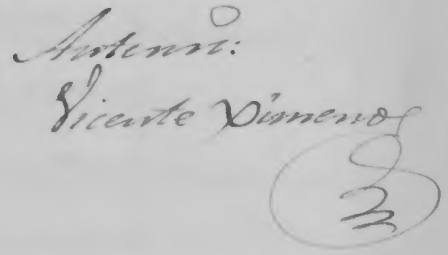 Antemi:
Vicente Ximenez